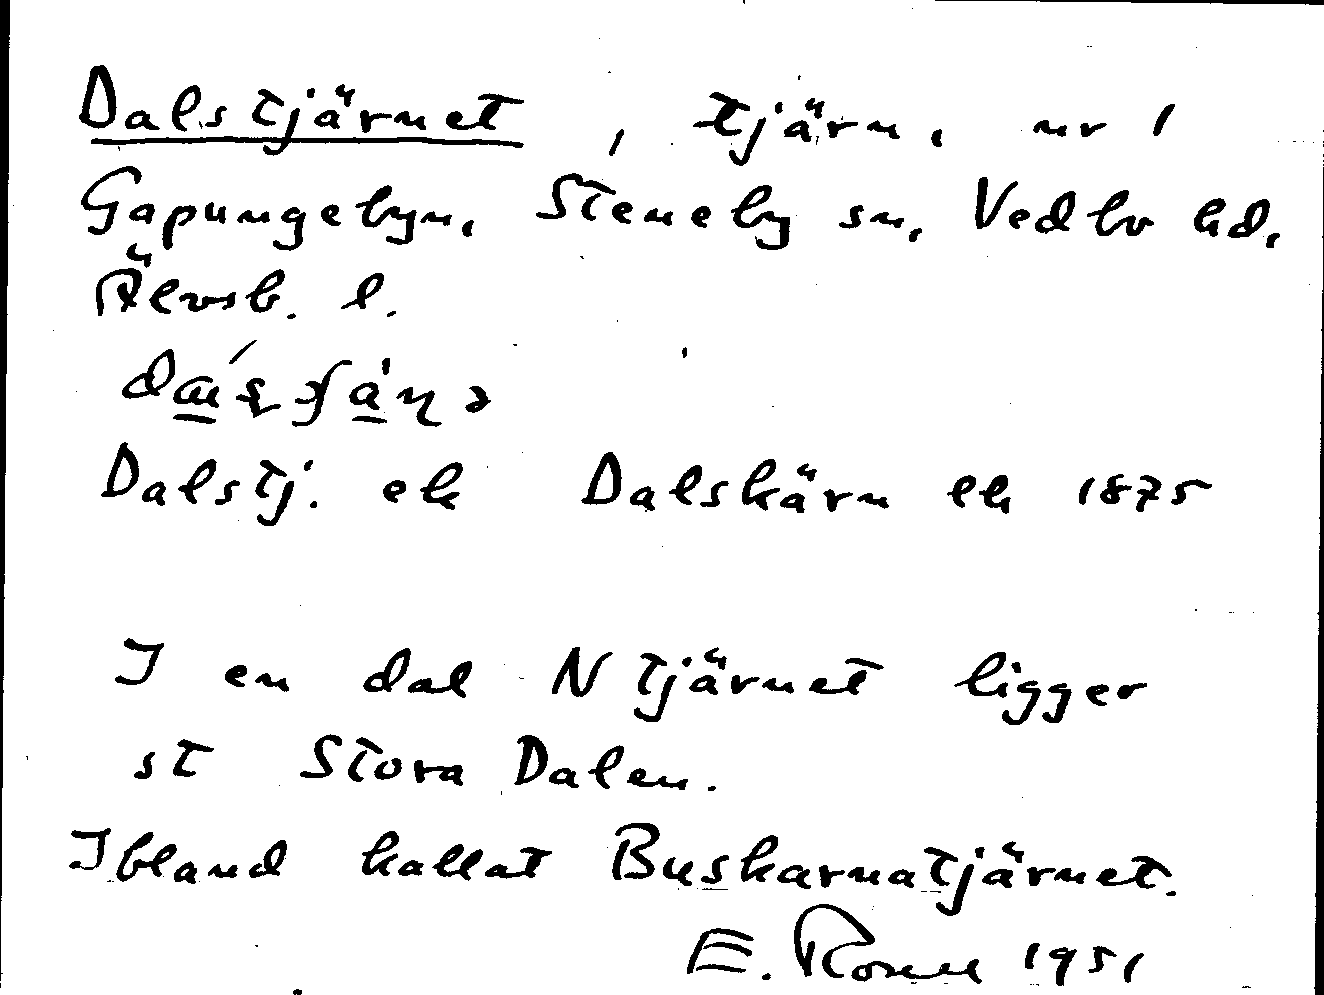 Dalstjärnet, tjärn, nr 1
Gapungebyn, Steneby sn, Vedbo hd,
Älvsb. l.
Dalstj. ek Dalskärn ek 1875
I en dal N tjärnet ligger
st Stora Dalen.
Ibland kallat Buskarnatjärnet.
E. 1951